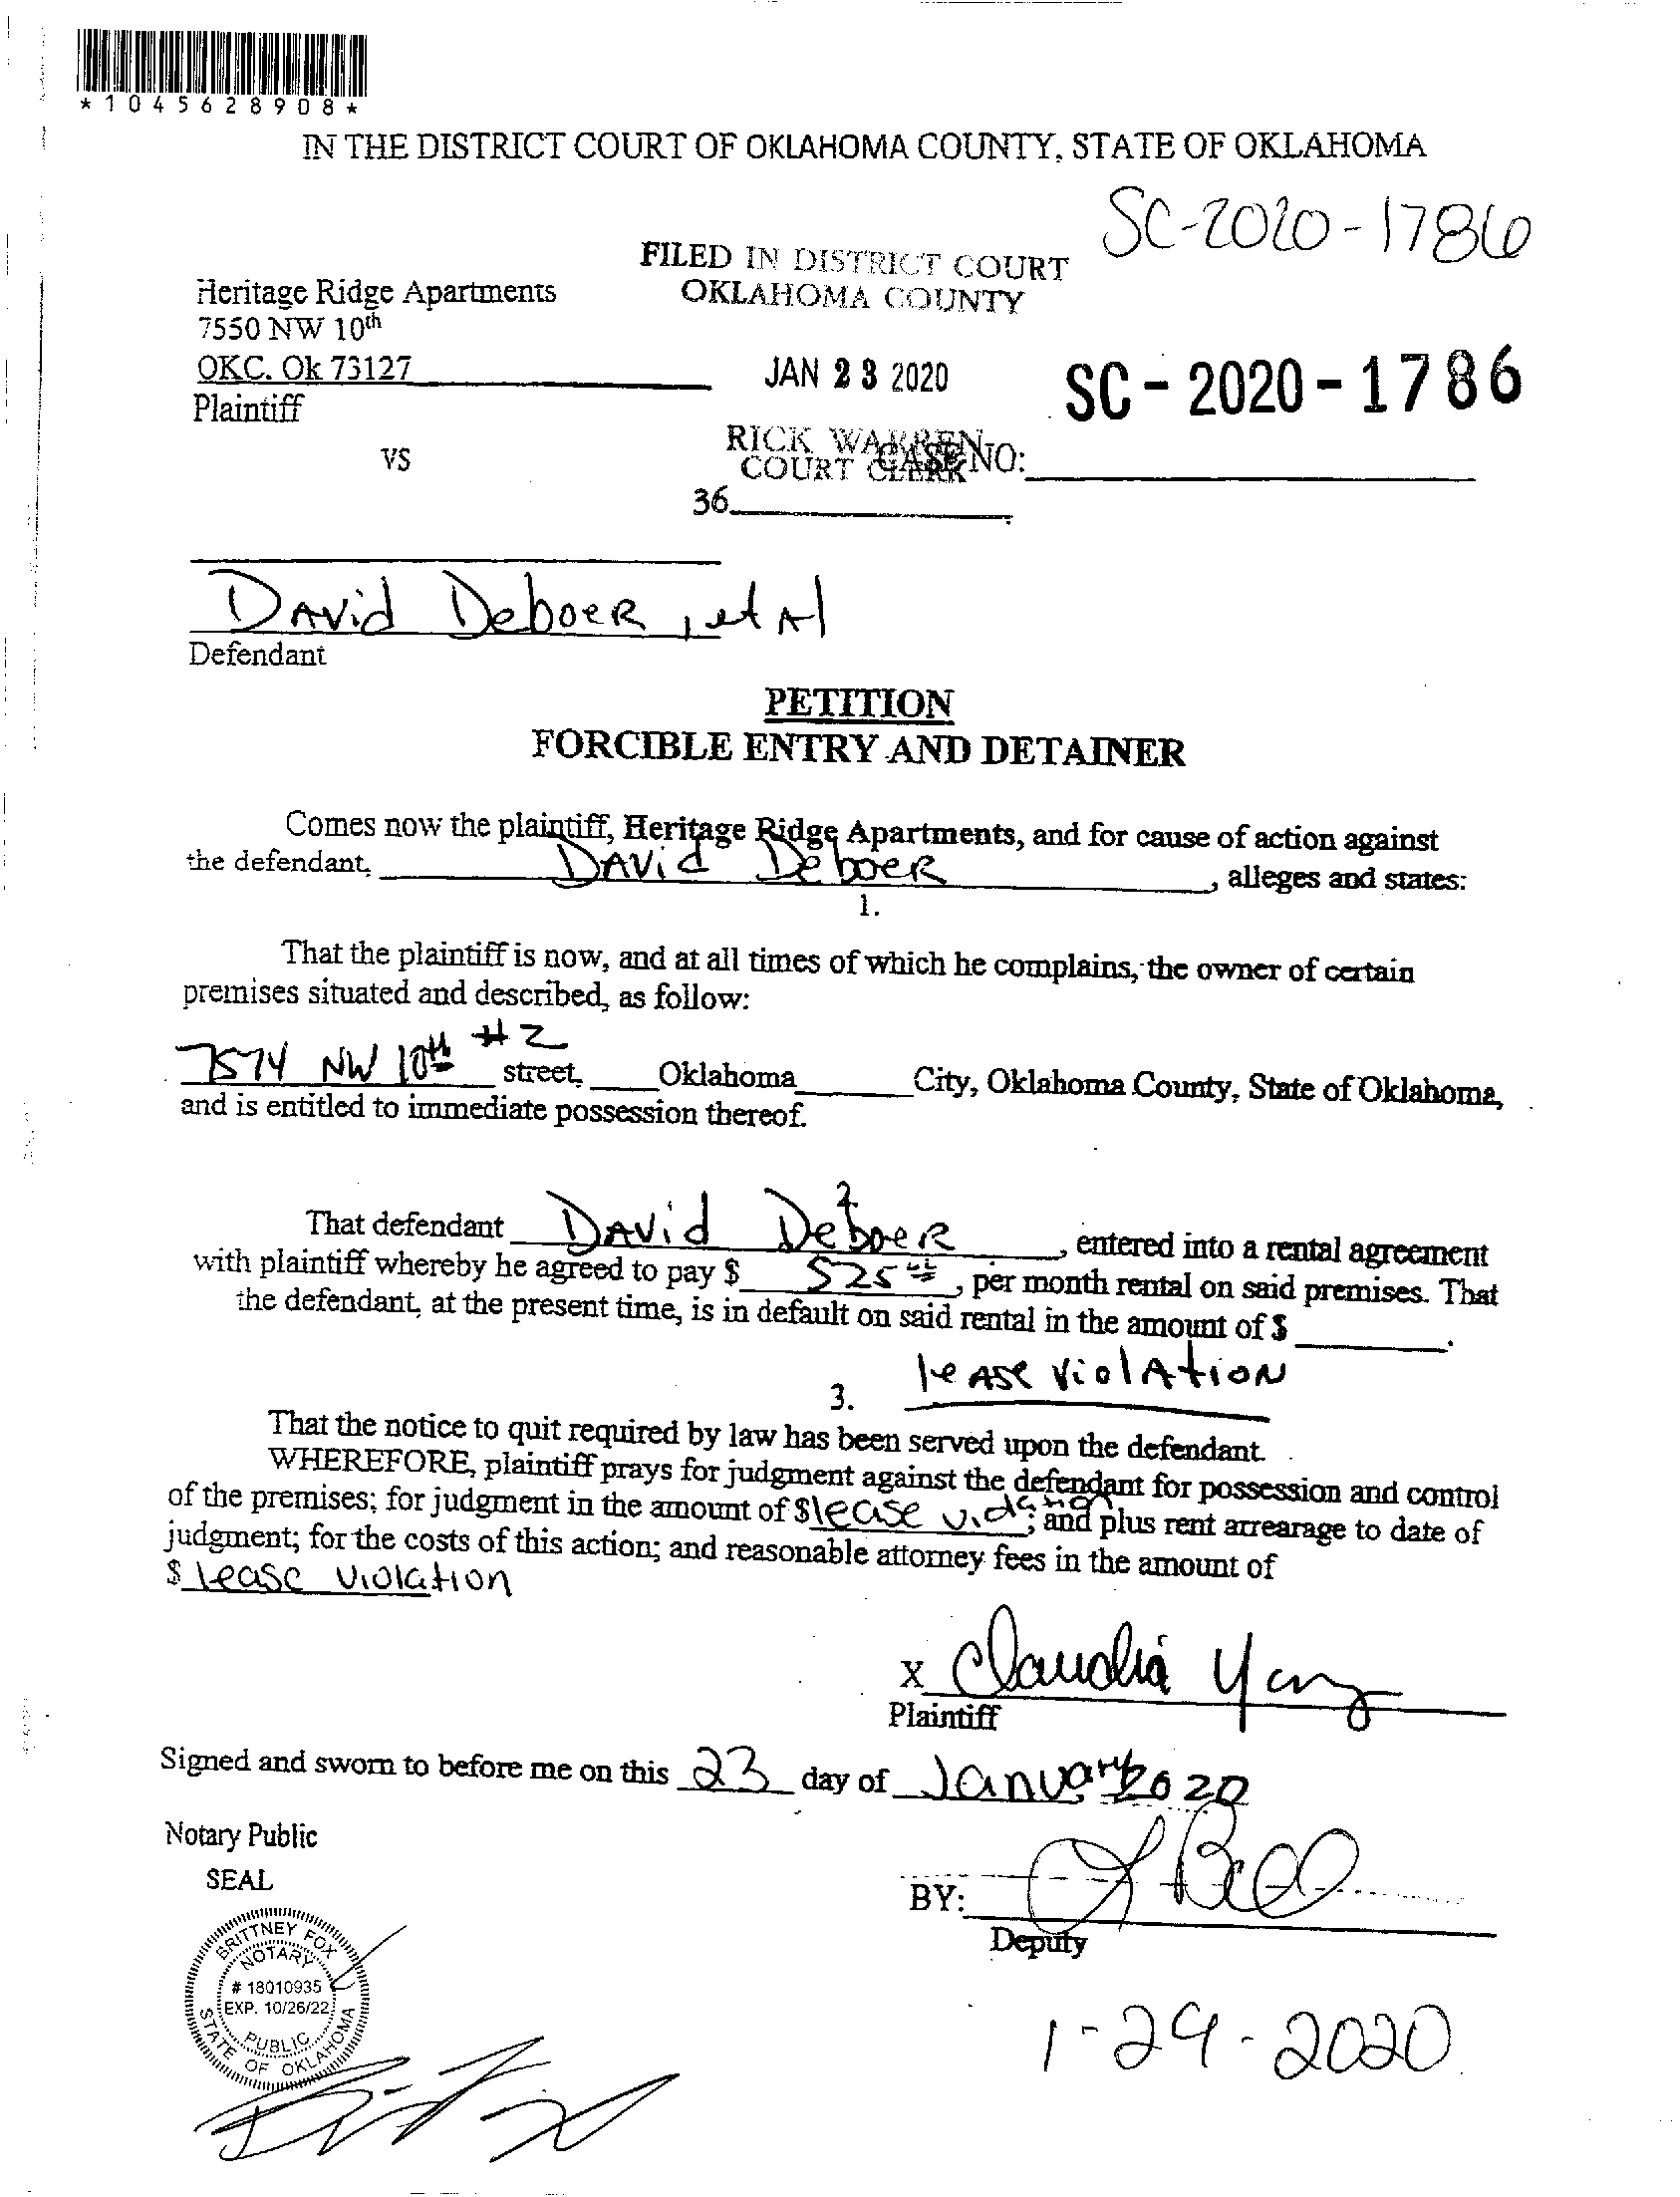 *1045628908*
IN THE DISTRICT COURT OF OKLAHOMA COUNTY, STATE OF OKLAHOMA
SC-2020-1786
FILED IN DISTRICT COURT
OKLAHOMA COUNTY
Heritage Ridge Apartments
7550 NW 10th
OKC. Ok 73127
JAN 23 2020
SC-2020-1786
Plaintiff
RICK WARREN
COURT CLERK
CASE NO:
VS
36
David Deboer, et Al
Defendant
PETITION
FORCIBLE ENTRY AND DETAINER
Comes now the plaintiff, Heritage Ridge Apartments, and for cause of action against
the defendant, David Deboer, alleges and states:
1.
That the plaintiff is now, and at all times of which he complains, the owner of certain
premises situated and described, as follow:
7574 NW 10th #2 street, Oklahoma City, Oklahoma County, State of Oklahoma,
and is entitled to immediate possession thereof.
2
That defendant David Deboer, entered into a rental agreement
with plaintiff whereby he agreed to pay $ 525, per month rental on said premises. That
the defendant, at the present time, is in default on said rental in the amount of $ .
lease violation
3.
That the notice to quit required by law has been served upon the defendant.
WHEREFORE, plaintiff prays for judgment against the defendant for possession and control
of the premises; for judgment in the amount of $ lease violation; and plus rent arrearage to date of
judgment; for the costs of this action; and reasonable attorney fees in the amount of
$ lease violation
x Claudia
Plaintiff
Signed and sworn to before me on this 23 day of January 2020
Notary Public
SEAL
BY:
Deputy
BRITTNEY FOX
NOTARY
# 18010935
EXP. 10/26/22
PUBLIC
STATE OF OKLAHOMA
1-29-2020